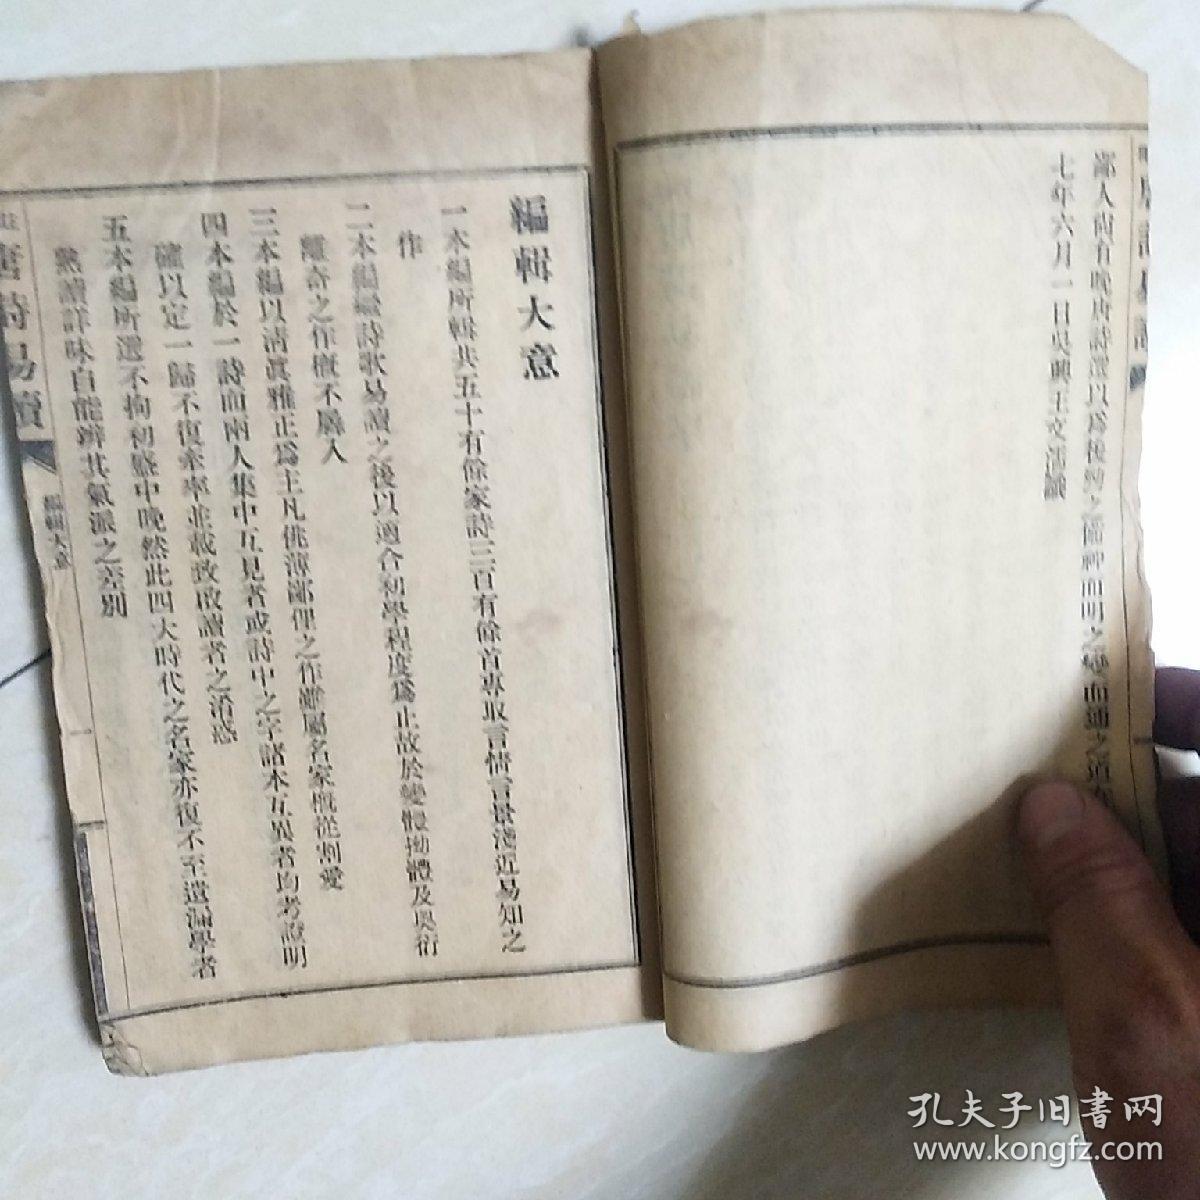 鄙人尚有晚唐詩選以爲後幼之
七年六月一日吳興王文濡識
編輯大意
一本編所輯共五十有餘家詩三百有餘首專取言情言景淺近易知之
作
二本編繼詩歌易讀之後以適合初學程度爲止故於變體拗體及奧衍
離奇之作概不羼入
三本編以清眞雅正爲主凡佻薄鄙俚之作雖屬名家概從割愛
四本編於一詩而兩人集中互見者或詩中之字諸本互異者均考證明
確以定一歸不復牽率並載致啟讀者之淆惑
五本編所選不拘初盛中晚然此四大時代之名家亦復不至遺漏學者
熟讀詳味自能辨其氣派之差別
唐詩易讀
編輯大意
一
孔夫子旧书网
www.kongfz.com